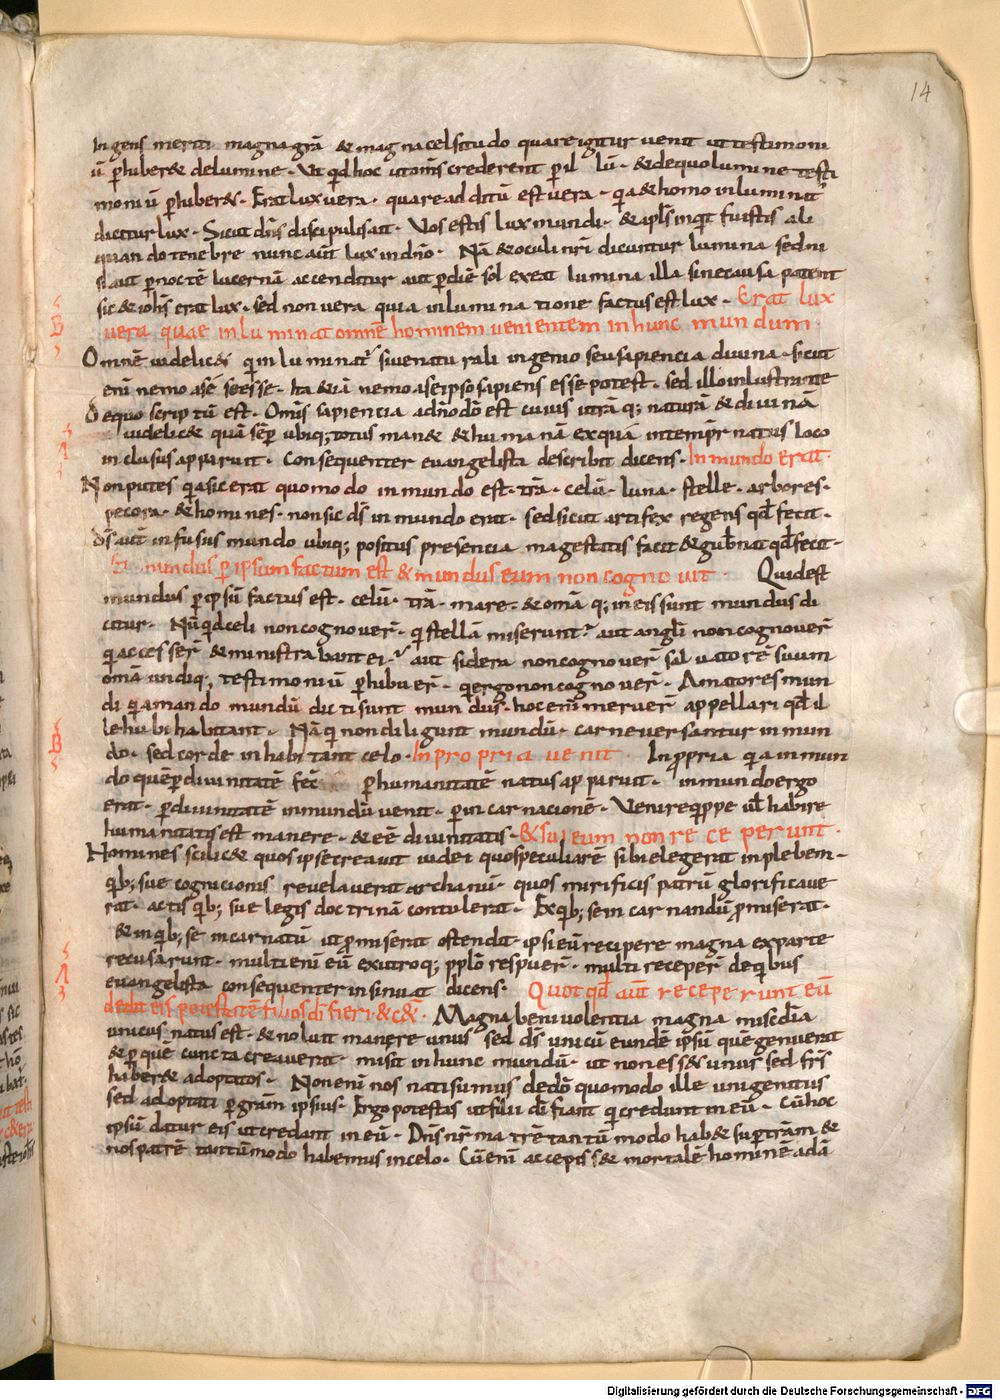 14
Ingens meriti magna grā & magna celsitudo quare igitur uenit ut testimoni
ū ꝑhiber& de lumine · Ut qd hoc ut oms̄ crederent ꝑ il lū · & de quo lumine testi
moniū ꝑhiber& · Erat lux uera · quare additū est uera · qa & homo inluminat᷑
dicitur lux · Sicut dn̄s discipulis ait · Vos estis lux mundi · & apls̄ inquit fuistis ali
quando tenebre nunc aūt lux in dn̄o · Nā & oculi nr̄i dicuntur lumina sed ni
si aut ꝑ noctē lucernā accenditur aut ꝑ diē sol exeat lumina illa sine causa patent
sic & iohs̄ erat lux · sed non uera quia inluminatione factus est lux · Erat lux
B
uera quae inluminat omnē hominem uenientem in hunc mundum ·
Omnē uidelic& q inluminat᷑ siue naturali ingenio seu sapiencia diuina · sicut
eni nemo a sē see esse · Ita & iā nemo a se ipso sapiens esse potest · sed illo inlustrante
De quo scriptū est · Omis sapiencia a dn̄o dō est cuius utrāq; naturā & diuinā
A
uidelic& quā sēꝑ ubiq; totus mane& & humanā ex qua in tempr̄ natus loco
inclusus apparuit · Consequenter euangelista describit dicens · In mundo erat ·
Non putes qa sic erat quomodo in mundo est · trā · celū · luna · stelle · arbores ·
pecora · & homines · non sic ds̄ in mundo erat · sed sicut artifex regens qd fecit ·
Ds̄ aūt infusus mundo ubiq; positus presencia magestatis facit & gub̄nat qd fecit ·
Et mundus ꝑ ipsum factum est & mundus eum non cognouit · Quid est
mundus ꝑ ipsū factus est · celū · trā · mare · & omā q; in eis sunt mundus di
citur · Nū qd celi non cognouer̄ · q stellā miserunt? aut angli non cognouer̄
qi accesser̄ & ministrabant ei? aut sidera non cognouer̄ saluatorē suum
omā undiq; testimoniū ꝑhibuer̄ · qi ergo non cognouer̄ · Amatores mun
di qi amando mundū dicti sunt mundus · hoc eni meruer̄ appellari qd il
B
le hubi habitant · Nā qi non diligunt mundū · carne uersantur in mun
do · sed corde inhabitant celo · In propria uenit · In ꝓpria qa in mun
do quē ꝑ diuinitatē fec̄ ꝑ humanitatē natus apparuit · in mundo ergo
erat · ꝑ diuinitatē in mundū uenit · ꝑ incarnacionē · Uenire qppe ul habire
humanitatis est manere · & eē diuinitatis · & sui eum non receperunt ·
Homines scilic& quos ipse creauit uidei quos peculiarē sibi elegerat in plebem ·
qb; sue cognicionis reuelauerat archanū · quos mirificis patrū glorificaue
rat · actis qb; sue legis doctrinā contulerat · Ex qb; se incarnandū ꝓmiserat ·
& in qb; se incarnatū ut ꝓmiserat ostendit · ipsi eū recipere magna ex parte
A
recusarunt · multi eni eū ex utroq; pplō respuer̄ · multi receper̄ de qibus
euangelista consequenter insinuat dicens · Quot qd aūt receperunt eū
dedit eis potestatē filios di fieri & c& · Magna beniuolentia magna misc̄dia
unicus natus est · & noluit manere unus sed ds̄ unicū eundē ipsū quē genuerat
& ꝑ quē cuncta creauerat · misit in hunc mundū · ut non ess& unus sed frs̄
haber& adoptatos · Non eni nos nati sumus de dō quomodo ille unigenitus
sed adoptati ꝑ gram̄ ipsius · Ergo potestas ut filii di fiant qi credunt in eū · Cū hoc
ipsū datur eis ut credant in eū · Dn̄s nr̄ matrē tantūmodo hab& suꝑ trām &
nos patrē tantūmodo habemus in celo · Cū eni accepiss& mortalē hominē adā
Digitalisierung gefördert durch die Deutsche Forschungsgemeinschaft - DFG